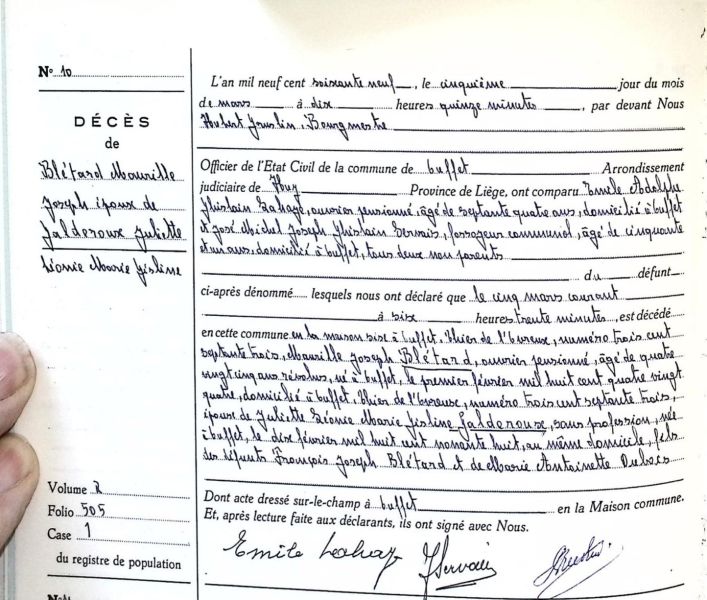 N° 10
DÉCÈS
de
Blétard Maurille
Joseph époux de
Jalderoux Juliette
Léonie Marie Gisline
Volume 2
Folio 505
Case 1
du registre de population
L'an mil neuf cent soixante neuf, le cinquième jour du mois
de mars à dix heures quinze minutes, par devant Nous
Hubert Bourgmestre
Officier de l'Etat Civil de la commune de buffet Arrondissement
judiciaire de Huy Province de Liège, ont comparu Emile Adolphe
Ghislain Lahaye, ouvrier pensionné, âgé de septante quatre ans, domicilié à buffet
et José Michel Joseph Ghislain Servais, fossoyeur communal, âgé de cinquante
et un ans, domicilié à buffet, tous deux non parents
du défunt
ci-après dénommé lesquels nous ont déclaré que le cinq mars courant
à six heures trente minutes, est décédé
en cette commune en la maison sise à buffet, Thier de l'bureux, numéro trois cent
septante trois, Maurille Joseph Blétard, ouvrier pensionné, âgé de quatre
vingt cinq ans révolus, né à buffet, le premier février mil huit cent quatre vingt
quatre, domicilié à buffet, Thier de l'bureuse, numéro trois cent septante trois,
époux de Juliette Léonie Marie Gisline Jalderoux, sans profession, née
à buffet, le dix février mil huit cent nonante huit, au même domicile, fils
des défunts François Joseph Blétard et de Marie Antoinette Dubois
Dont acte dressé sur-le-champ à buffet en la Maison commune.
Et, après lecture faite aux déclarants, ils ont signé avec Nous.
Emile Lahaye J Servais